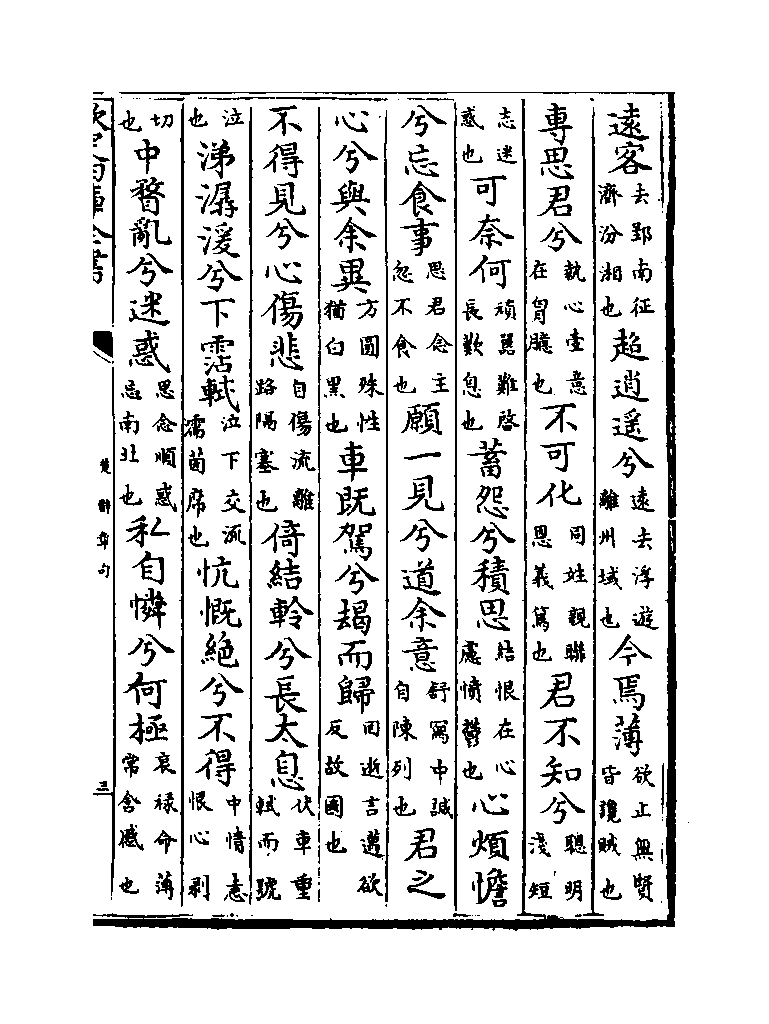 遠客去郢南征濟汾湘也超逍遥兮遠去浮遊離州域也今焉薄欲止無賢皆讒賊也
專思君兮執心壹意在胷臆也不可化同姓親聯恩義篤也君不知兮聰明淺短
志迷惑也可奈何頑嚚難啓長歎息也蓄怨兮積思結恨在心慮憤鬱也心煩憺
兮忘食事思君念主忽不食也願一見兮道余意舒寫中誠自陳列也君之
心兮與余異方圓殊性猶白黑也車既駕兮朅而歸囘逝言邁欲反故國也
不得見兮心傷悲自傷流離路隔塞也倚結軨兮長太息伏車重軾而號
泣也涕潺湲兮下霑軾泣下交流濡茵席也忼慨絶兮不得中情恚恨心剥
切也中瞀亂兮迷惑思念順惑忘南北也私自憐兮何極哀禄命薄常含慼也
楚辭章句 三